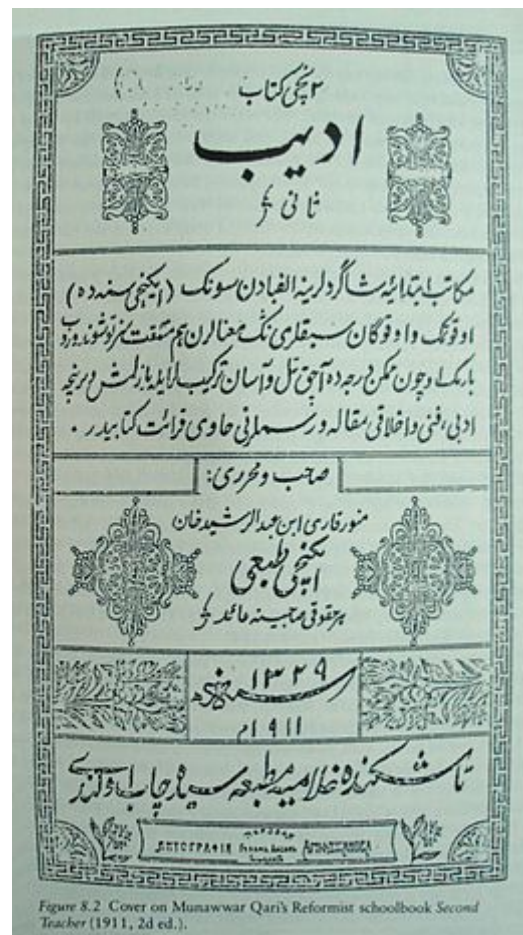 ۲نچی کتاب
ادیب
ثانی
مکاتب ابتدائیه شاگردلرینه الفبادن سونک (ایکنچی سنه ده)
اوقوتمک و اوقوگان سبقلری ننگ معنالرن هم مشقت سز توشوندروب
بارمک اوچون ممکن درجه ده آچیق تل و آسان ترکیب لر ایله یازلمش و برنچه
ادبی، فنی و اخلاقی مقاله و رسملرنی حاوی قرائت کتابیدر.
صاحب و محرری:
منور قاری ابن عبدالرشید خان
ایکنچی طبعی
هر حقوقی عائد
۱۳۲۹
۱۹۱۱م
تاشکنده غلامیه مطبعه سیده چاپ اولندی
ЛИТОГРАФІЯ
Figure 8.2 Cover on Munawwar Qari's Reformist schoolbook Second
Teacher (1911, 2d ed.).